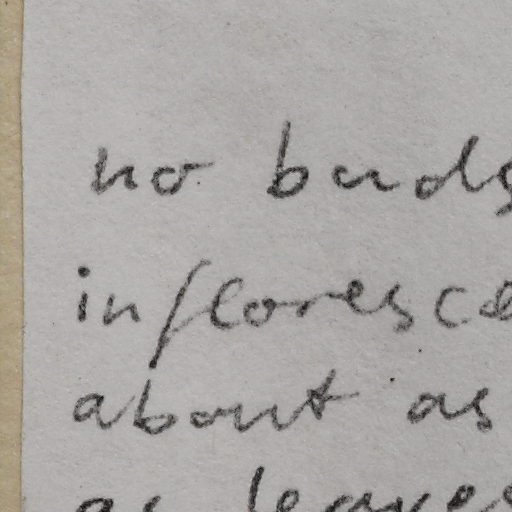 no buds
infloresce
about as
as leaves